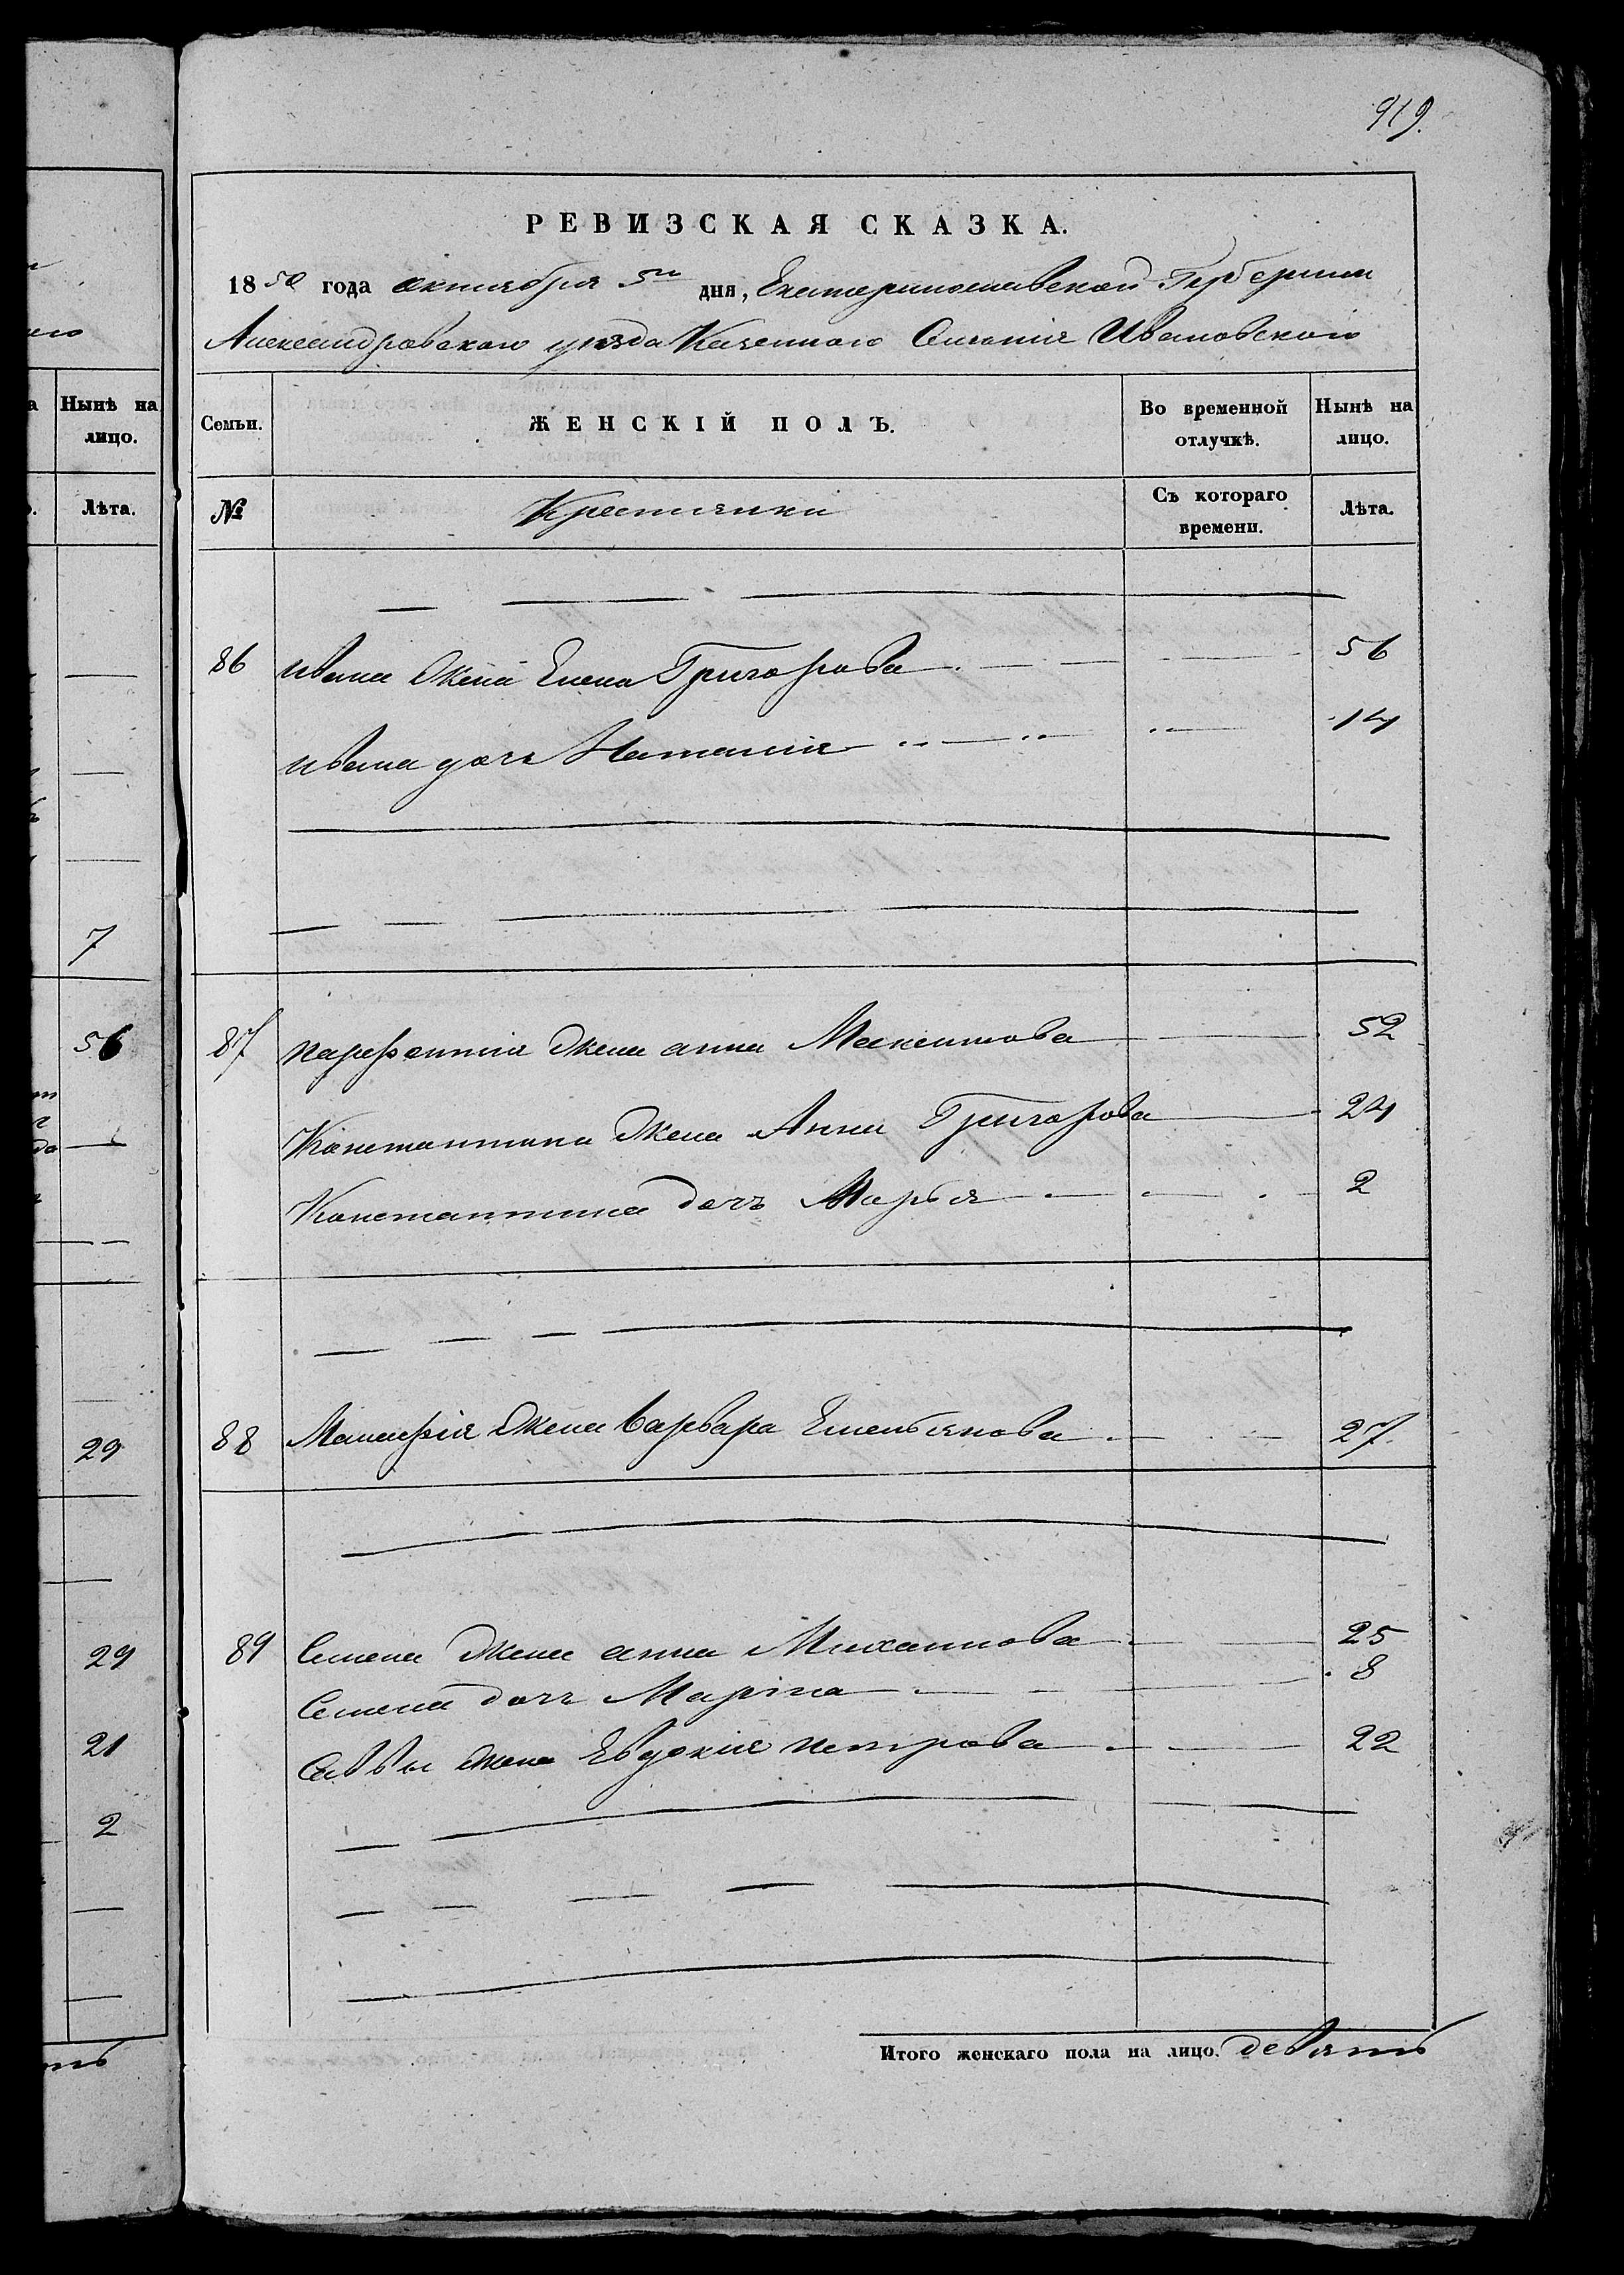 919.
РЕВИЗСКАЯ СКАЗКА.
1850 года октября 5го дня, Екатеринославской Губернии
Александровского уезда Казенного Селения Ивановского
Семьи. ЖЕНСКІЙ ПОЛЪ. Во временной отлучкѣ. Нынѣ на лицо.
№ Крестьянки Съ котораго времени. Лѣта.
86 Ивана жена Елена Григорова 56
Ивана дочь Наталия 14
87 Парфентия жена анна Максимова 52
Константина жена Анна Григорова 24
Константина дочь Марья 2
88 жена Варвара Емельянова 27.
89 Семена жена анна Михаилова 25
Семена дочь Маріна 8
Саввы жена Евдокия петрова 22
Итого женскаго пола на лицо. девять
Нынѣ на лицо.
Лѣта.
7
56
29
29
21
2